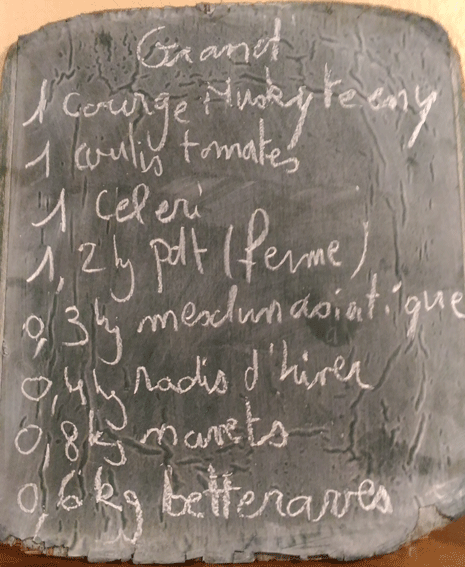 Grand
1 courge Musky te easy
1 coulis tomates
1 céleri
1,2 kg pdt (ferme)
0,3 kg mesclun asiatique
0,4 kg radis d'hiver
0,8 kg navets
0,6 kg betteraves